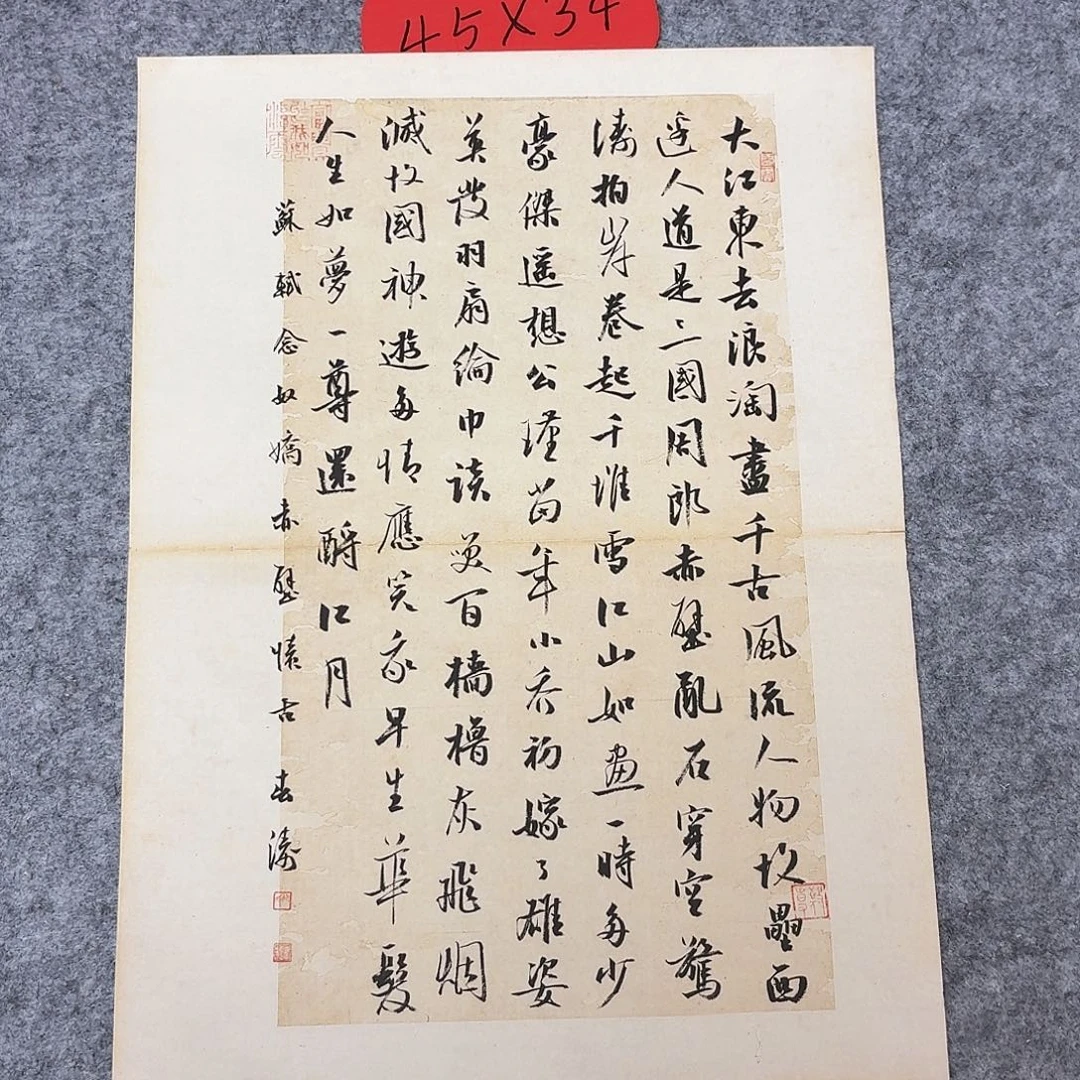 45X34
大江東去浪淘盡千古風流人物故壘西
邊人道是三國周郎赤壁亂石穿空驚
濤拍岸卷起千堆雪江山如畫一時多少
豪傑遥想公瑾當年小喬初嫁了雄姿
英發羽扇綸巾談笑間檣櫓灰飛烟
滅故國神遊多情應笑我早生華髮
人生如夢一尊還酹江月
蘇軾念奴嬌赤壁懷古 春濤